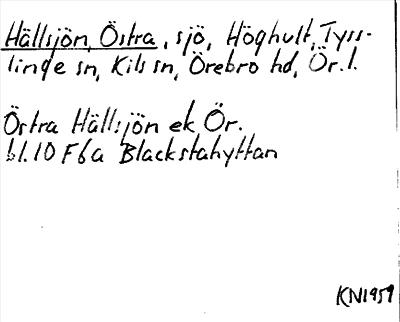 Hällsjön, Östra, sjö, Höghult, Tyss-
linge sn, Kils sn, Örebro hd, Ör. l.
Östra Hällsjön ek Ör.
bl. 10 F 6a Blackstahyttan
KN1959